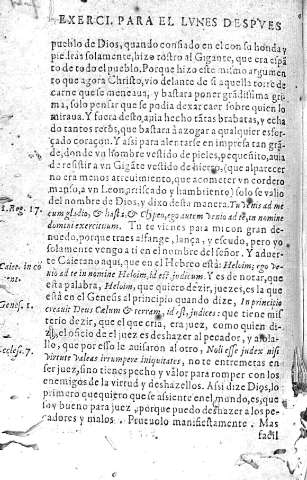 EXERCI. PARA EL LVNES DESPVES
pueblo de Dios, quando confiado en el con su honda y
piedras solamente, hizo rostro al Gigante, que era espã
to de todo el pueblo. Porque hizo este mismo argumen
to que agora Christo, vio delante de si aquella torre de
carne que se meneaua, y bastara poner grãdissima gri
ma, solo pensar que se podia dexar caer sobre quien lo
miraua. Y fuera desto, auia hecho tãtas brabatas, y echa
do tantos retõs, que bastara à azogar a qualquier esfor-
çado coraçon. Y assi para alentarse en impresa tan grã-
de, donde vn hombre vestido de pieles, pequeñito, auia
de resistir a vn Gigãte vestido de hierro, (que al parecer
no era menos atreuimiento, que acometer vn cordero
manso, a vn Leon, arriscado y hambriento) solo se valio
del nombre de Dios, y dixo desta manera. Tu venis ad me
1. Reg. 17.
cum gladio, & hasta, & Clypeo, ego autem venio ad te, in nomine
domini exercituum. Tu te vienes para mi con gran de-
nuedo, porque traes alfange, lança, y escudo, pero yo
solamente vengo a ti en el nombre del señor. Y aduier-
te Caietano aqui, que en el Hebreo està: Heloim, ego ve-
Caiet. in cõ
nio ad te in nomine Heloim, id est iudicum. Y es de notar, que
esta palabra, Heloim, que quiero dezir, juezes, es la que
està en el Genesis al principio quando dize, In principio
Genes. 1.
creauit Deus Cælum & terram, id est, iudices: que tiene mis
terio dezir, que el que cria, era juez, como quien di-
ze, el oficio de el juez es deshazer al pecador, y assola-
llo, que por esso le auisaron al otro, Noli esse iudex nisi
Eccles. 7.
virtute valeas irrumpere iniquitates, no te entremetas en
ser juez, sino tienes pecho y valor para romper con los
enemigos de la virtud y deshazellos. Assi dize Dios, lo
primero que quiero que se assiente en el mundo, es, que
soy bueno para juez, porque puedo deshazer a los pe-
cadores y malos. Prueuolo manifiestamente. Mas
facil